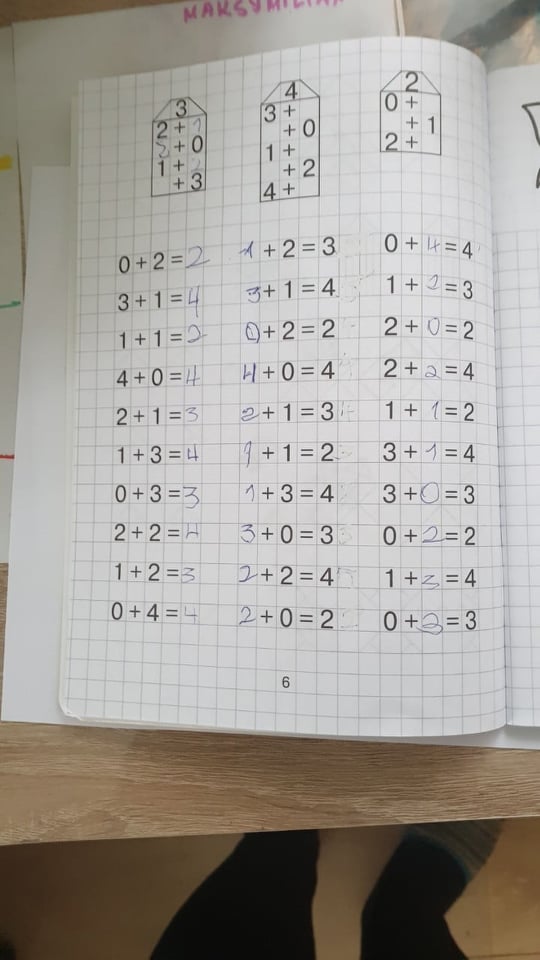 MAKSYMILIAN
3 4 2
2 + 1 3 + 0 +
3 + 0 + 0 + 1
1 + 2 1 + 2 +
+ 3 + 2
4 +
0 + 2 = 2 1 + 2 = 3 0 + 4 = 4
3 + 1 = 4 3 + 1 = 4 1 + 2 = 3
1 + 1 = 2 0 + 2 = 2 2 + 0 = 2
4 + 0 = 4 4 + 0 = 4 2 + 2 = 4
2 + 1 = 3 2 + 1 = 3 1 + 1 = 2
1 + 3 = 4 1 + 1 = 2 3 + 1 = 4
0 + 3 = 3 1 + 3 = 4 3 + 0 = 3
2 + 2 = 4 3 + 0 = 3 0 + 2 = 2
1 + 2 = 3 2 + 2 = 4 1 + 3 = 4
0 + 4 = 4 2 + 0 = 2 0 + 3 = 3
6